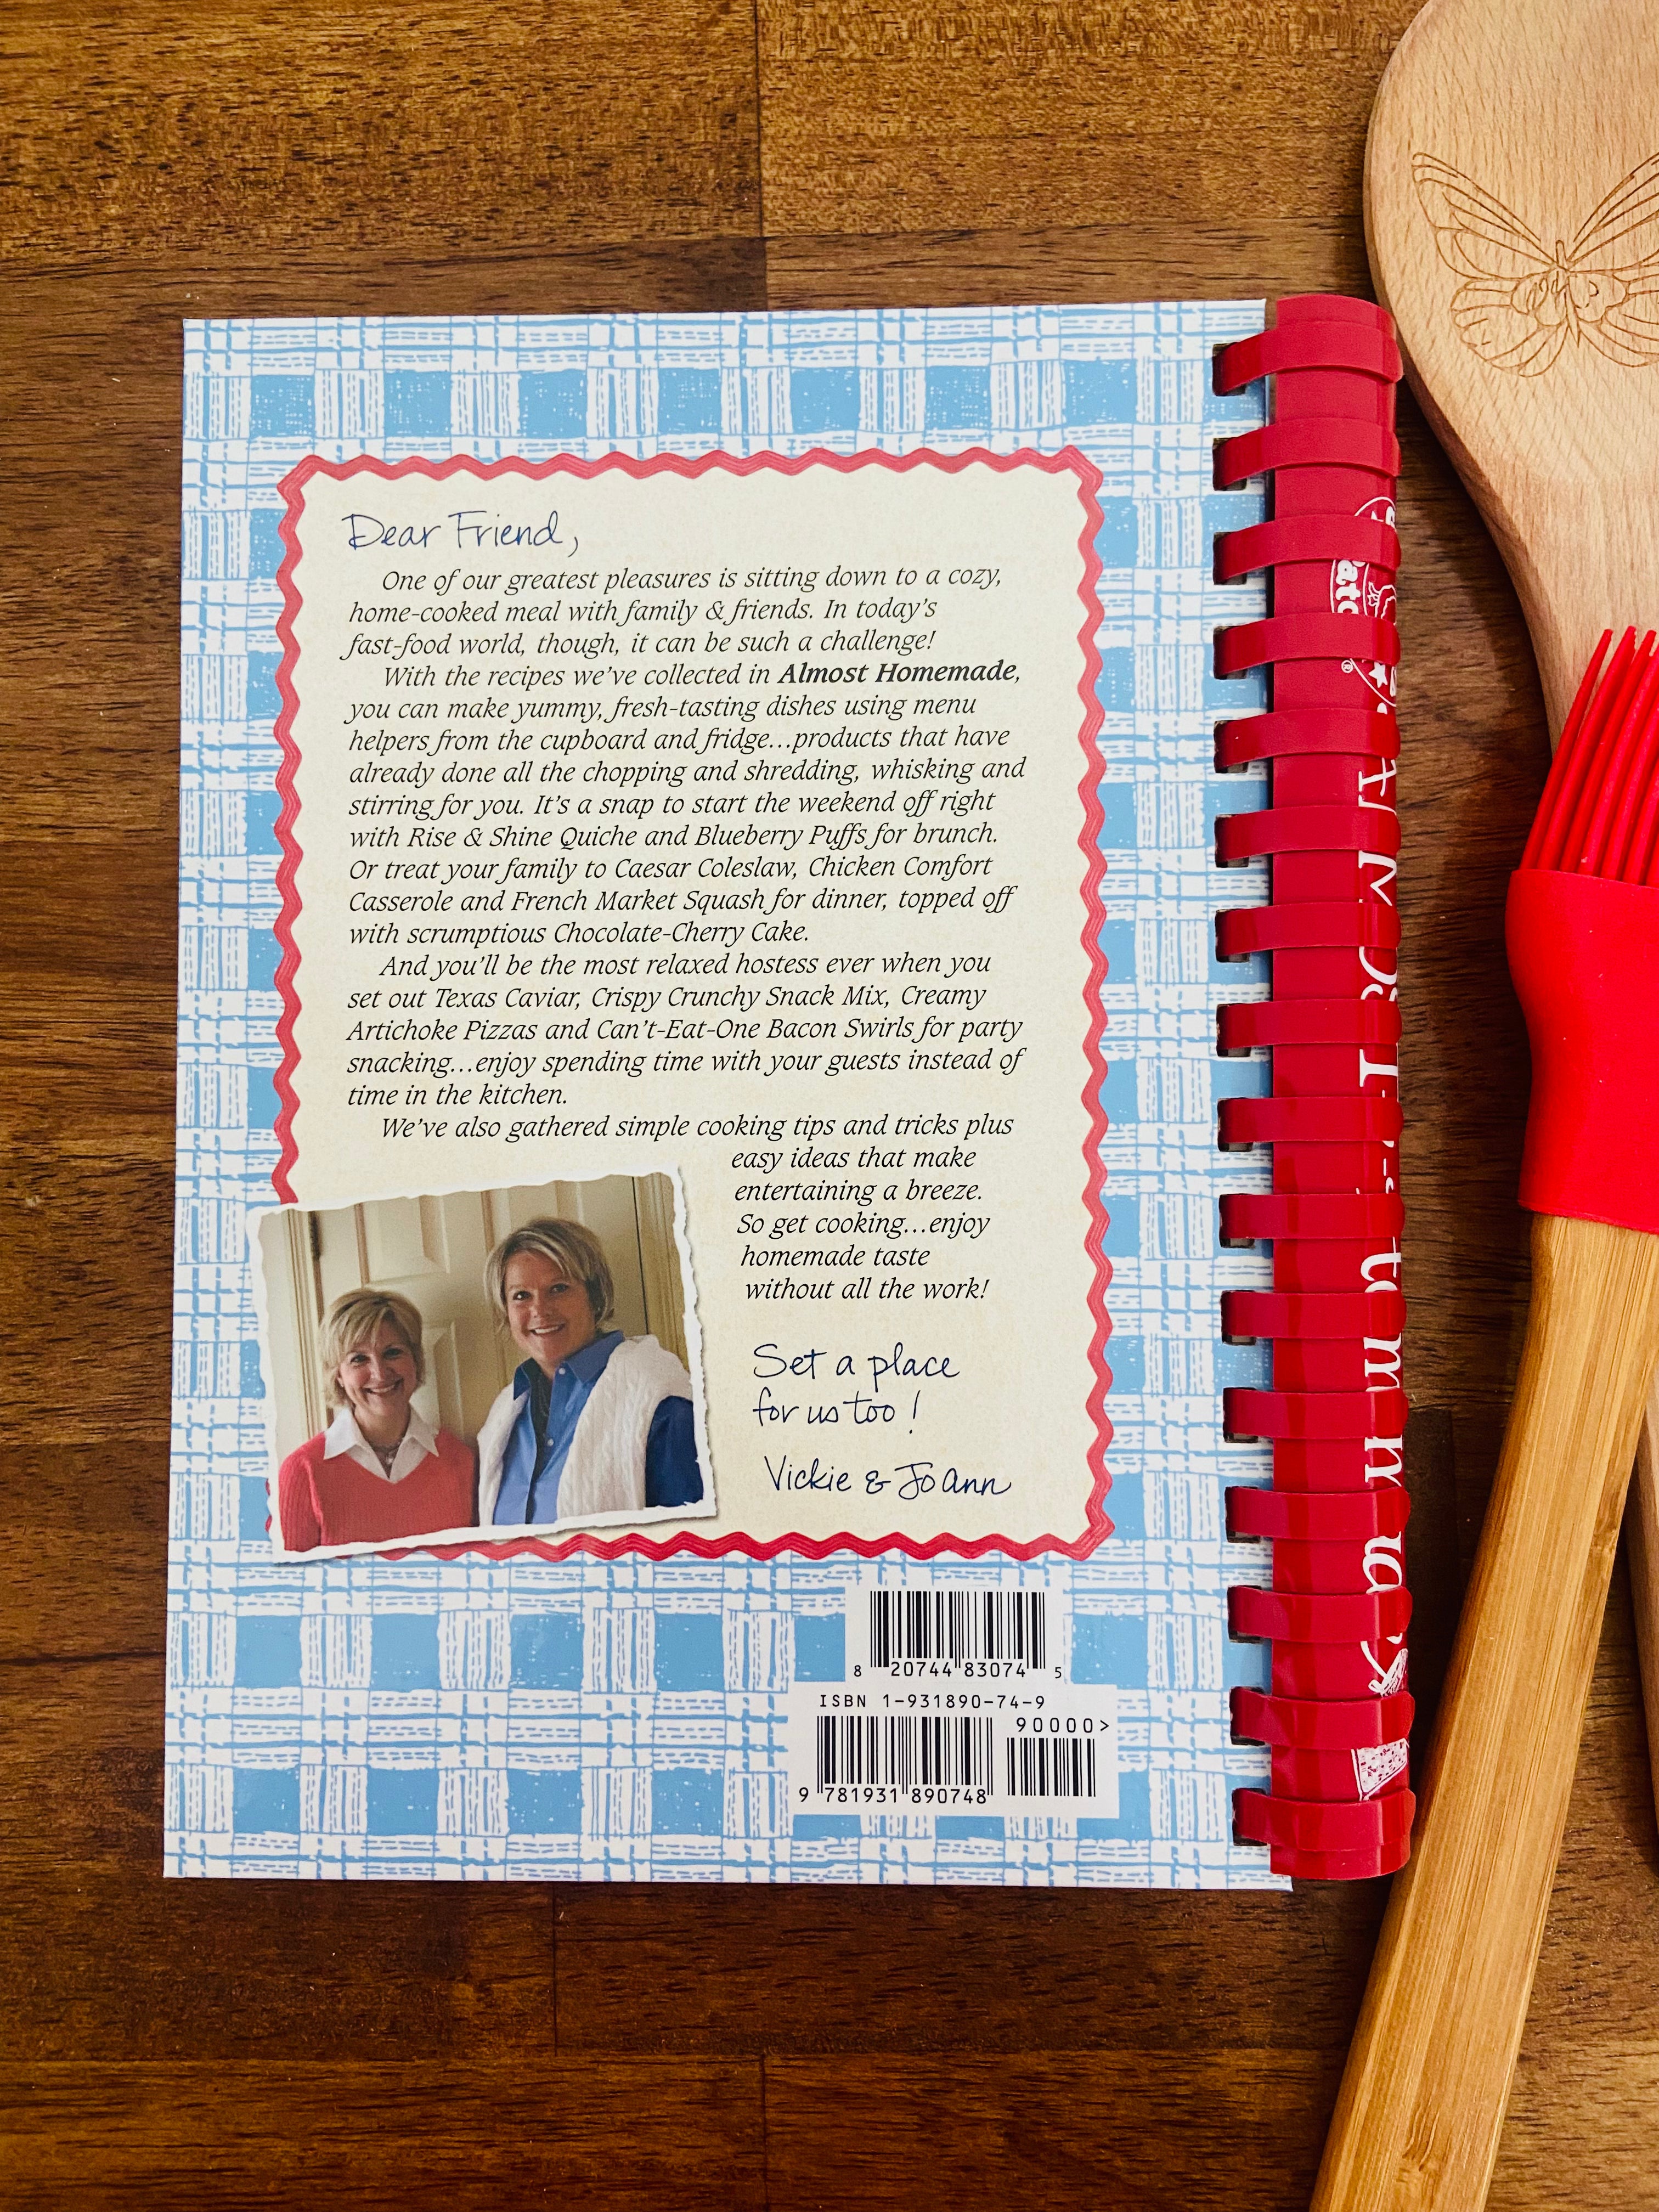 Dear Friend,
One of our greatest pleasures is sitting down to a cozy,
home-cooked meal with family & friends. In today's
fast-food world, though, it can be such a challenge!
With the recipes we've collected in Almost Homemade,
you can make yummy, fresh-tasting dishes using menu
helpers from the cupboard and fridge...products that have
already done all the chopping and shredding, whisking and
stirring for you. It's a snap to start the weekend off right
with Rise & Shine Quiche and Blueberry Puffs for brunch.
Or treat your family to Caesar Coleslaw, Chicken Comfort
Casserole and French Market Squash for dinner, topped off
with scrumptious Chocolate-Cherry Cake.
And you'll be the most relaxed hostess ever when you
set out Texas Caviar, Crispy Crunchy Snack Mix, Creamy
Artichoke Pizzas and Can't-Eat-One Bacon Swirls for party
snacking...enjoy spending time with your guests instead of
time in the kitchen.
We've also gathered simple cooking tips and tricks plus
easy ideas that make
entertaining a breeze.
So get cooking...enjoy
homemade taste
without all the work!
Set a place
for us too!
Vickie & JoAnn
8 20744 83074 5
ISBN 1-931890-74-9
90000>
9 781931 890748